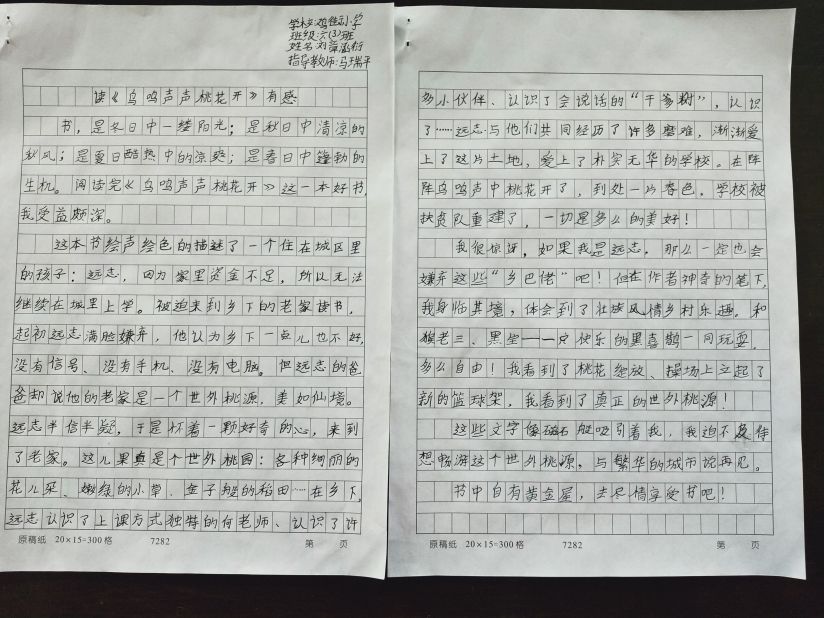 班级:六(3)班
指导教师:马瑞平
读《鸟鸣声声桃花开》有感
书，是冬日中一缕阳光；是秋日中清凉的
秋风；是夏日酷热中的凉爽；是春日中蓬勃的
生机。阅读完《鸟鸣声声桃花开》这一本好书，
我受益颇深。
这本书绘声绘色的描述了一个住在城区里
的孩子：远志，因为家里资金不足，所以无法
继续在城里上学。被迫来到乡下的老家读书，
起初远志满脸嫌弃，他认为乡下一点儿也不好，
没有信号、没有手机、没有电脑。但远志的爸
爸却说他的老家是一个世外桃源，美如仙境。
远志半信半疑，于是怀着一颗好奇的心，来到
了老家。这儿果真是个世外桃园：各种绚丽的
花儿朵、嫩绿的小草、金子般的稻田……在乡下，
远志认识了上课方式独特的何老师、认识了许
原稿纸 20×15=300格 7282 第 页
多小伙伴、认识了会说话的“千爹树”，认识
了……远志与他们共同经历了许多磨难，渐渐爱
上了这片土地，爱上了朴实无华的学校。在阵
阵鸟鸣声中桃花开了，到处一片春色。学校被
扶贫队重建了，一切是多么的美好！
我很惊讶，如果我是远志，那么一定也会
嫌弃这些“乡巴佬”吧！但在作者神奇的笔下，
我身临其境，体会到了壮族风情乡村乐趣。和
猴老三、黑坐——一只快乐的黑喜鹊一同玩耍，
多么自由！我看到了桃花绽放、操场上立起了
新的篮球架，我看到了真正的世外桃源！
这些文字像磁石般吸引着我，我迫不及待
想畅游这个世外桃源，与繁华的城市说再见。
书中自有黄金屋，去尽情享受书吧！
原稿纸 20×15=300格 7282 第 页